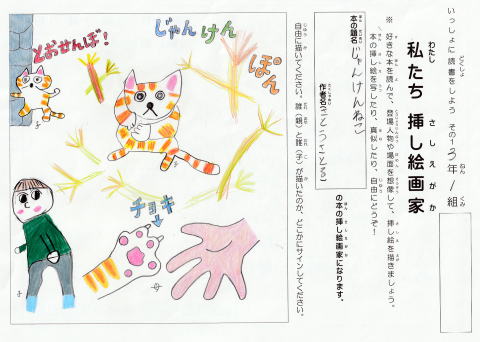 いっしょに 読書をしよう その1 3年1組
私たち 挿し絵画家
※ 好きな本を読んで、登場人物や場面を想像して、挿し絵を描きましょう。
本の挿し絵を写したり、真似したり、自由にどうぞ！
本の題名 じゃんけんねこ
作者名
の本の挿し絵画家になります。
自由に描いてください。誰(親)と誰(子)が描いたのか、どこかにサインしてください。
じゃんけん
ぽん
とおせんぼ！
チョキ